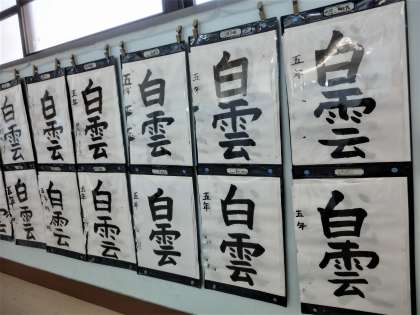 白雲
白雲
白雲
五年
白雲
五年
白雲
五年
白雲
五年
白雲
白雲
白雲
五年
白雲
五年
白雲
五年
白雲
五年